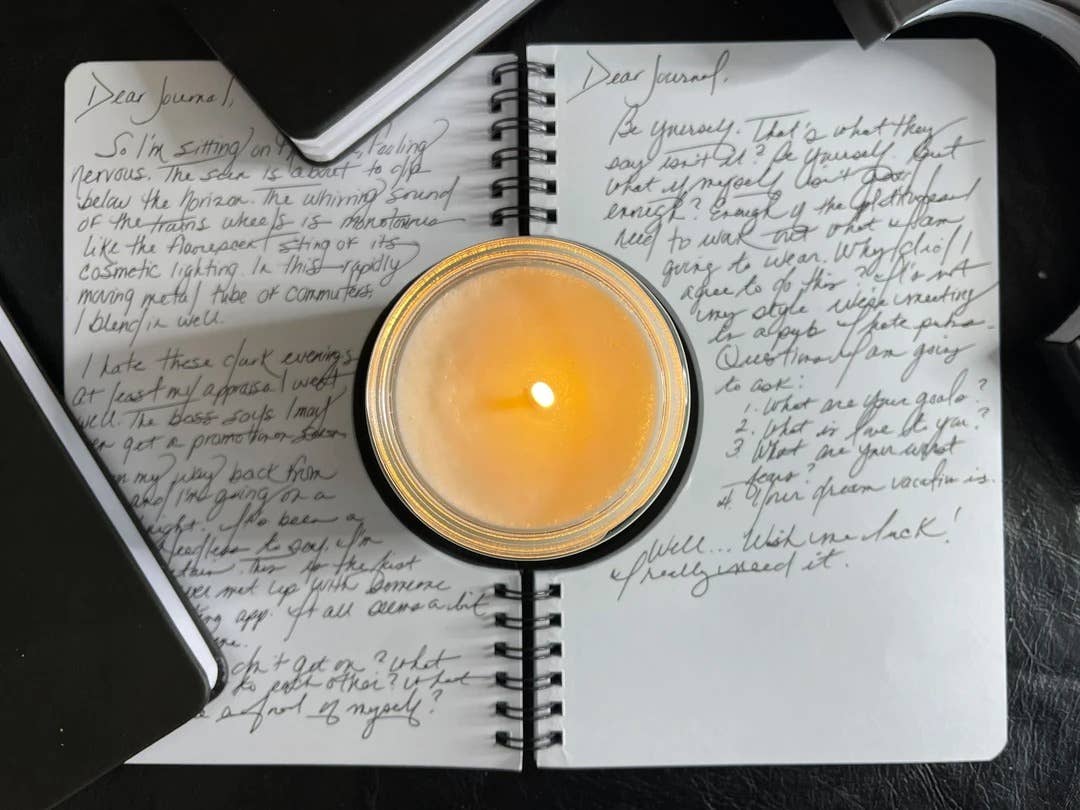 Dear Journal,
So I'm sitting on feeling
nervous. The sun is about to dip
below the horizon. The whirring sound
of the trains wheels is monotonous
like the flourescent sting of its
cosmetic lighting. In this rapidly
moving metal tube of commuters,
I blend in well.
I hate these dark evenings
at least my appraisal went
well. The boss says I may
get a promotion soon
my way back from
and I'm going on a
been a
needless to say, I'm
this is the first
met up with someone
app. It all seems a bit
don't get on? What
to each other? What
a of myself?
Dear Journal,
Be yourself. That's what they
say isn't it? Be yourself. But
what if myself isn't good
enough? Enough of the
need to work out what I am
going to wear. Why did I
agree to do this? It's not
my style. We're meeting
in a pub. I hate pubs.
Questions I am going
to ask:
1. What are your goals?
2. What is love to you?
3 What are your worst
fears?
4. Your dream vacation is.
Well... Wish me luck!
I really need it.